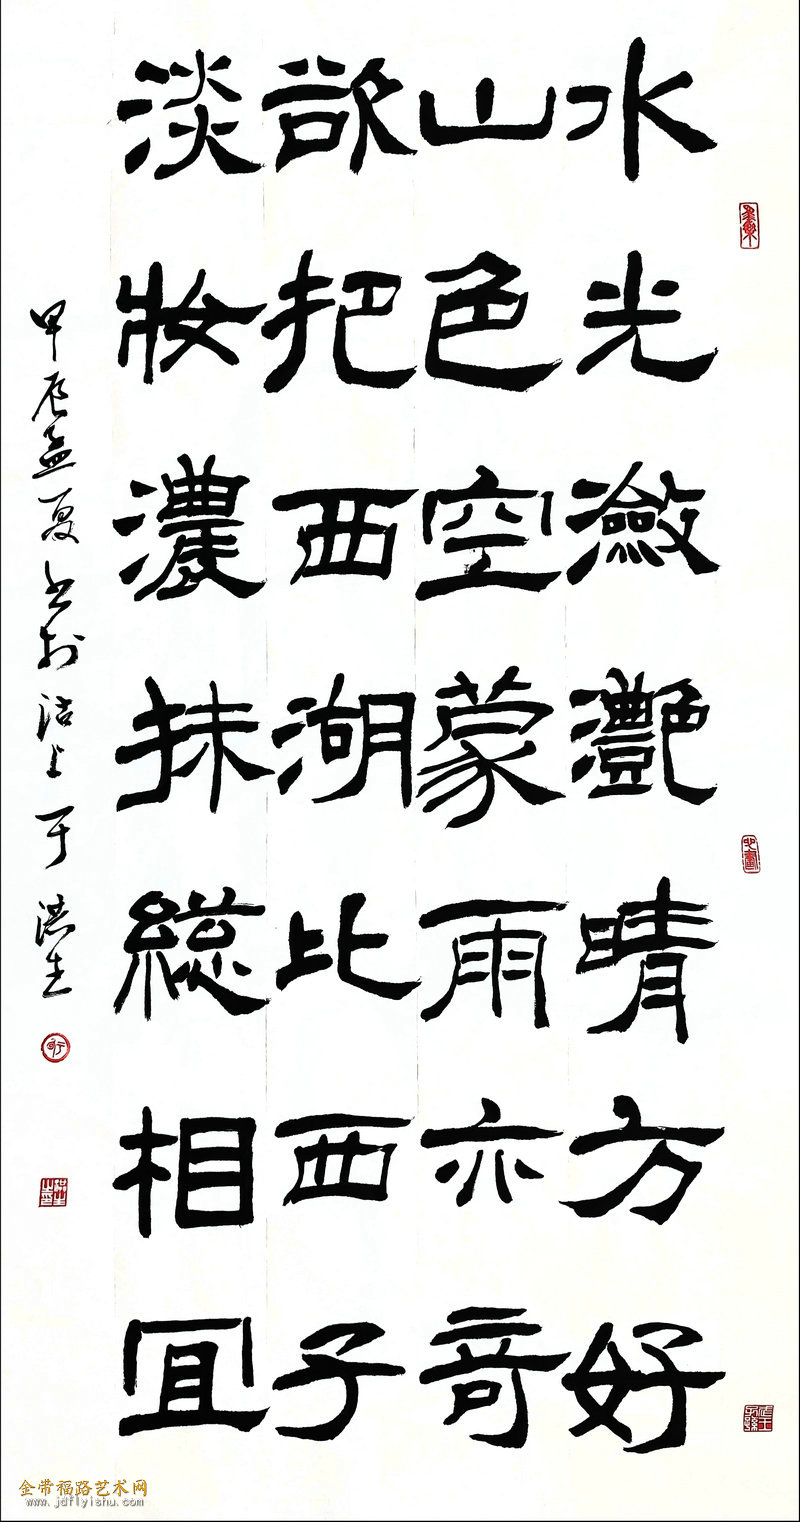 水光瀲灩晴方好
山色空蒙雨亦奇
欲把西湖比西子
淡妝濃抹總相宜
甲辰孟夏书於沽上于洪生
金带福路艺术网
www.jdflyishu.com